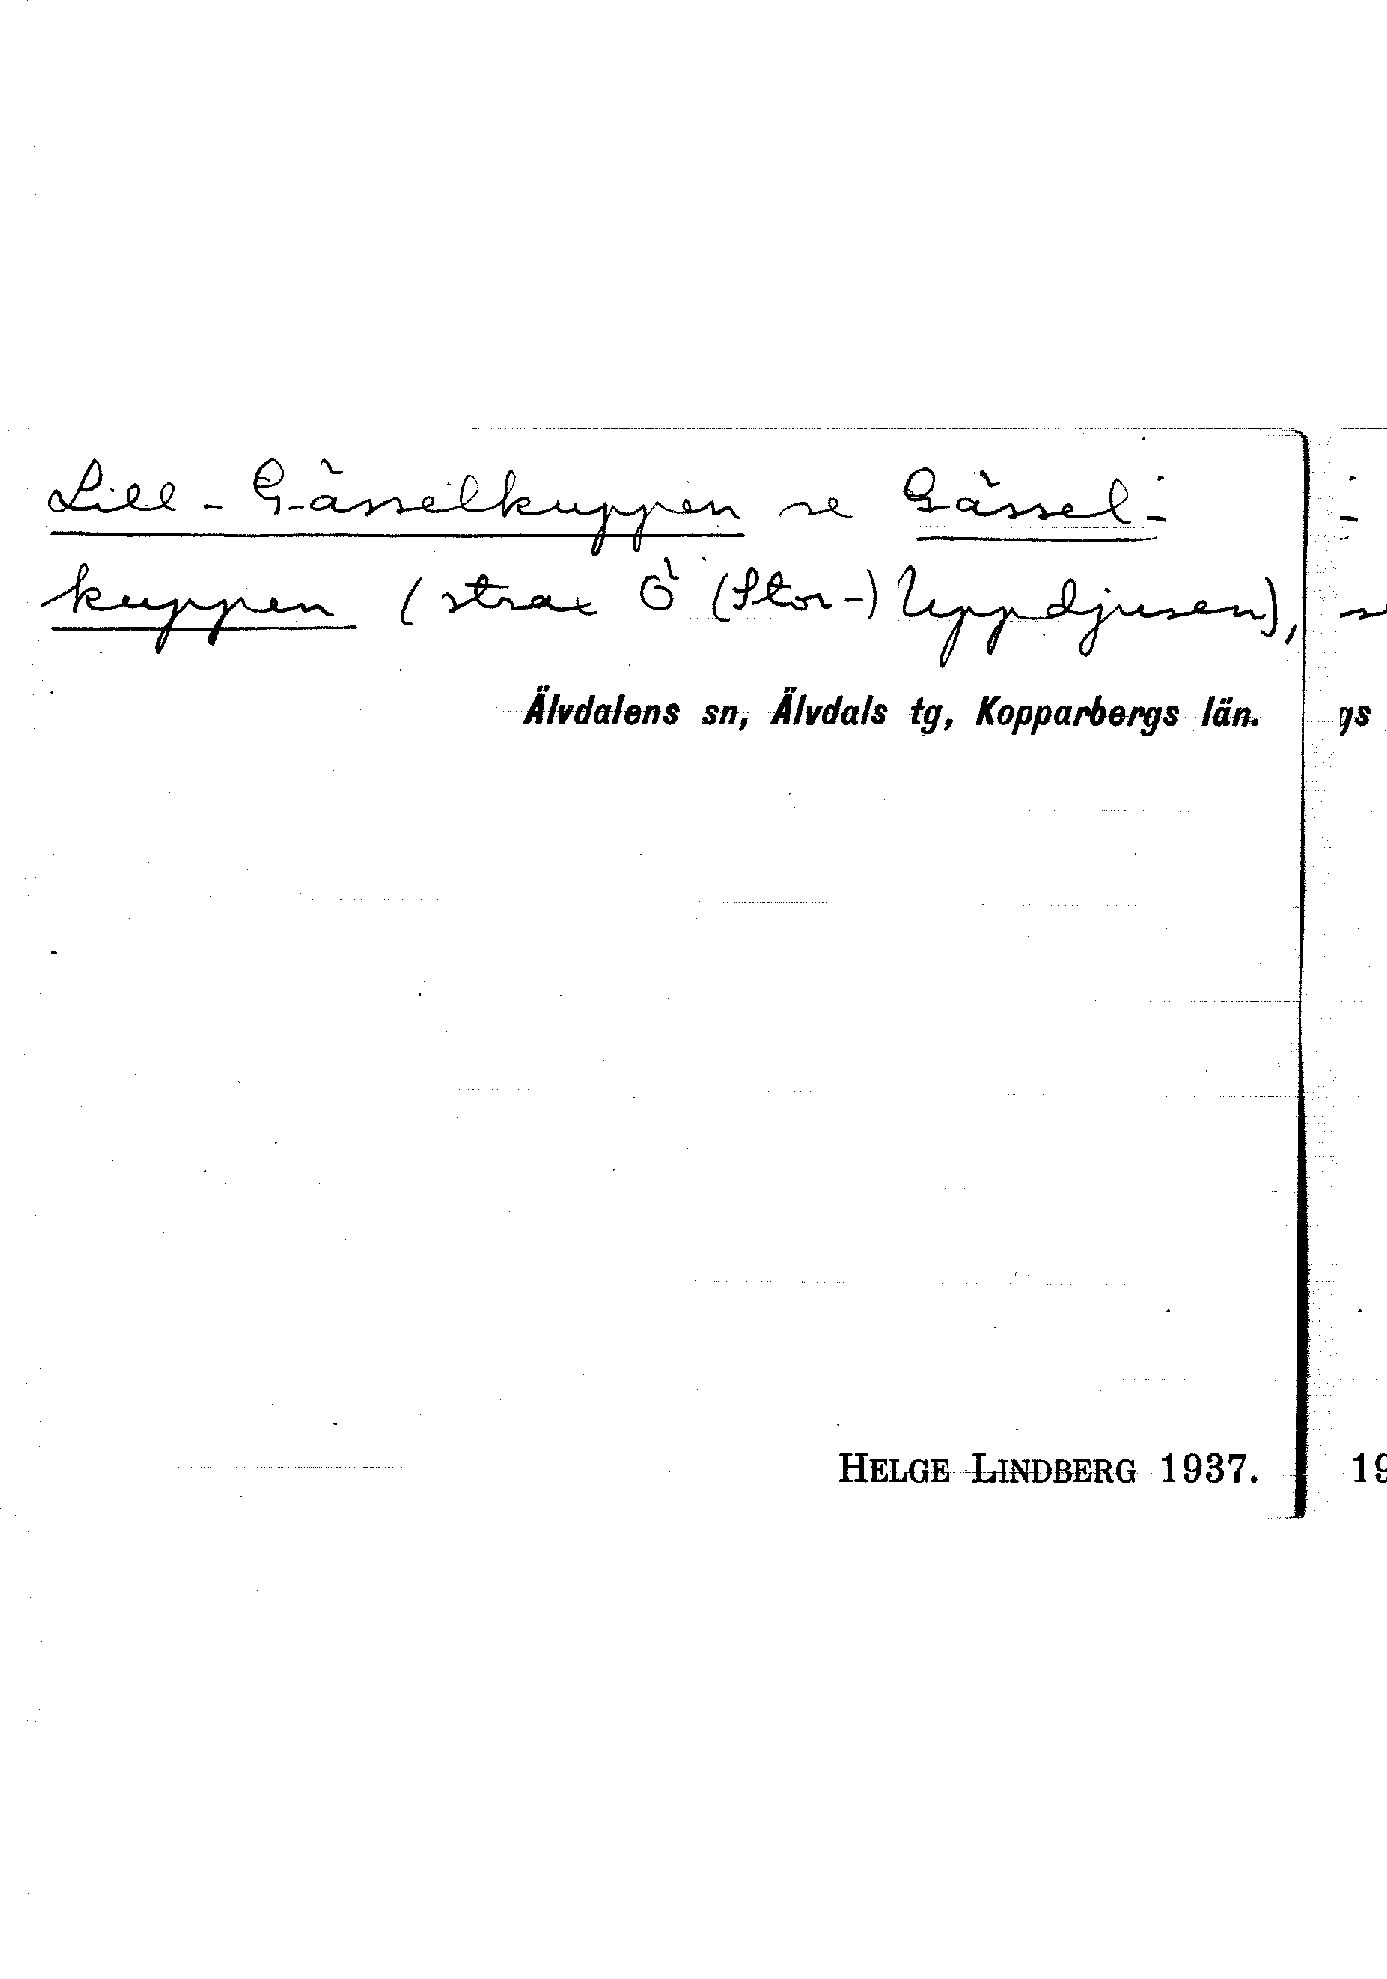 Lill-Gässelkuppen se Gässel-
kuppen (strax Ö (Stor-) Uppdjusen),
Älvdalens sn, Älvdals tg, Kopparbergs län.
HELGE LINDBERG 1937.